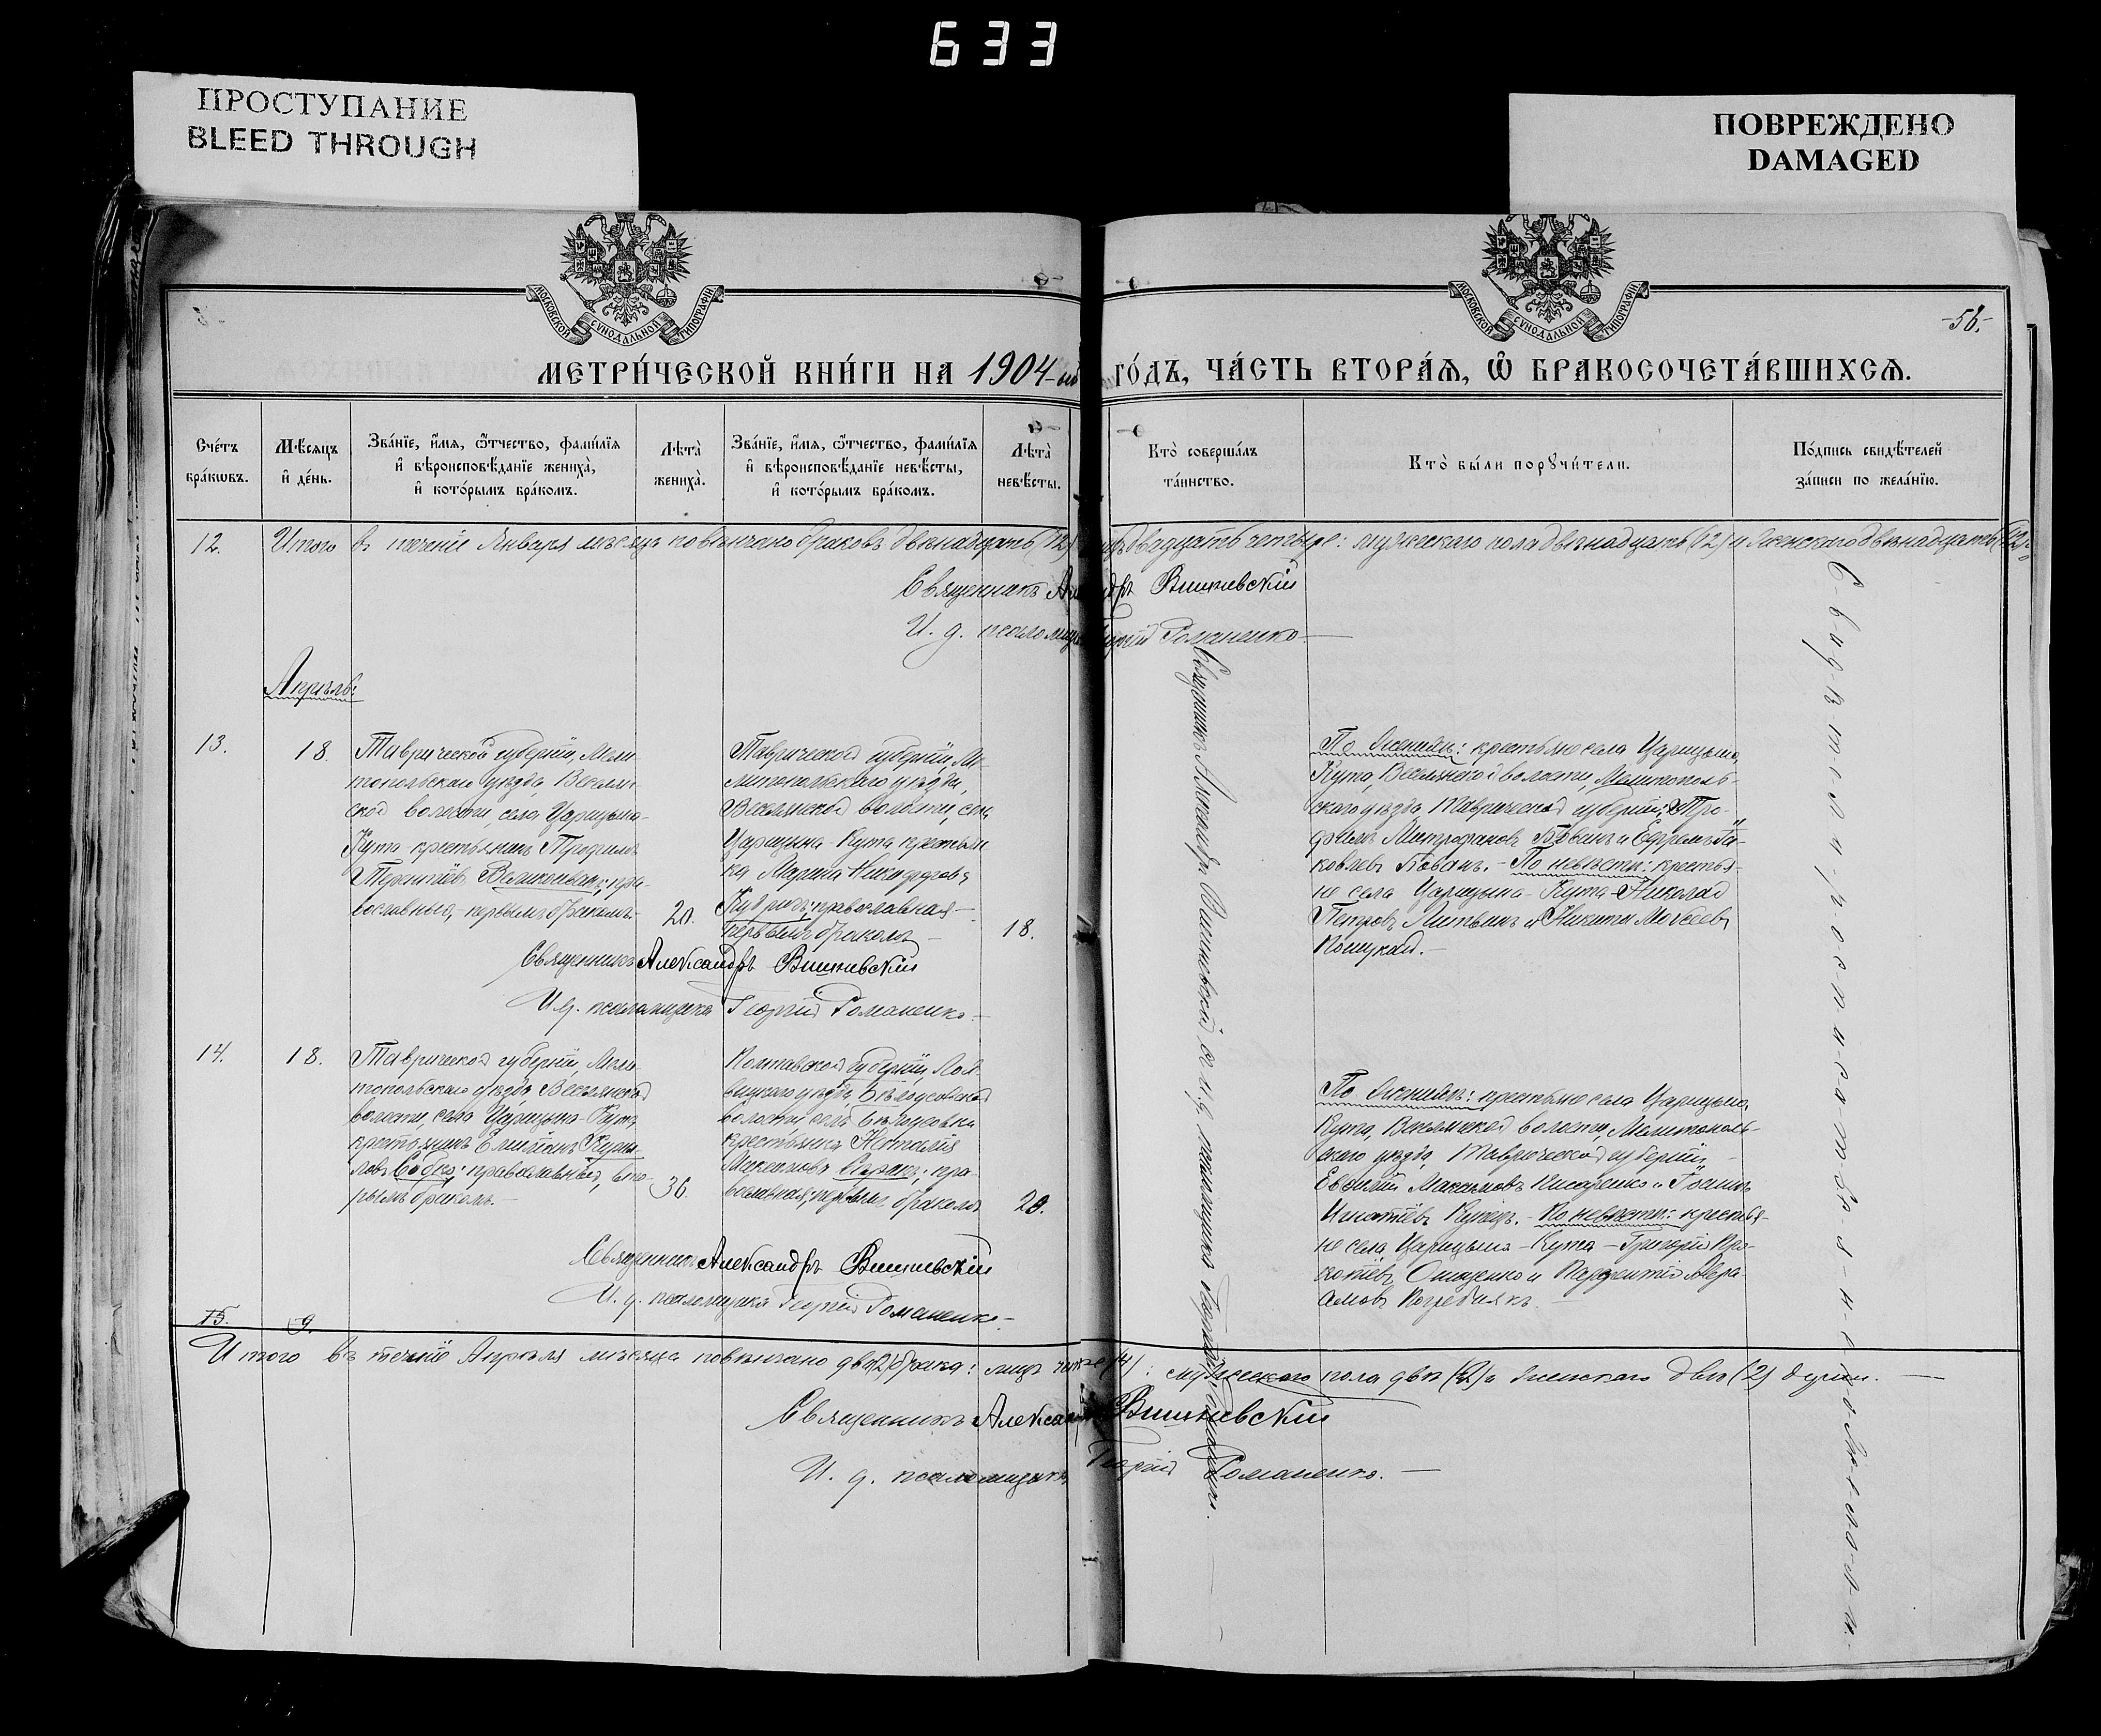 633
ПРОСТУПАНИЕ
BLEED THROUGH
ПОВРЕЖДЕНО
DAMAGED
МОСКОВСКОЙ СУНОДАЛЬНОЙ ТИПОГРАФІИ
МОСКОВСКОЙ СУНОДАЛЬНОЙ ТИПОГРАФІИ
-56.-
МЕТРИ́ЧЕСКОЙ КНИ́ГИ НА 1904-ый ГО́ДЪ, ЧА́СТЬ ВТОРА́Я, Ѡ БРАКОСОЧЕТА́ВШИХСѦ.
Сче́тъ бра́кѡвъ.
Мѣ́сяцъ и҆ де́нь.
Зва́нїе, и҆́мя, ѻ҆́тчество, фами́лїя и҆ вѣроисповѣ́данїе жениха̀, и҆ кото́рымъ бра́комъ.
Лѣта̀ жениха̀.
Зва́нїе, и҆́мя, ѻ҆́тчество, фами́лїя и҆ вѣроисповѣ́данїе невѣ́сты, и҆ кото́рымъ бра́комъ.
Лѣта̀ невѣ́сты.
Кто̀ соверша́лъ та́инство.
Кто̀ бы́ли порꙋчи́тели.
По́дпись свидѣ́телей за́писи по жела́нїю.
12. Итого въ теченіе Января мѣсяца повѣнчано браковъ двѣнадцать (12) лицъ двадцать четыре: мужескаго пола двѣнадцать (12) и женскаго двѣнадцать (12)
Священникъ Александръ Вишневскій
И. д. псаломщика Георгій Романенко.
Апрѣль:
13.
18.
Таврической губерніи, Мели-
топольскаго уѣзда, Веселян-
ской волости, села Царицына-
Кута крестьянинъ Трофимъ
Терентіевъ; пра-
вославный, первымъ бракомъ
20.
Таврической губерніи, Ме-
литопольскаго уѣзда,
Веселянской волости, села
Царицына-Кута крестьян-
ка Марина Никифорова
православная
первымъ бракомъ
18.
По женихѣ: крестьяне села Царицына-
Кута, Веселянской волости, Мелитополь-
скаго уѣзда, Таврической губерніи: Тро-
фимъ Митрофановъ Бованъ и Ефремъ Я
ковлевъ Бованъ. - По невѣстѣ: крестья-
не села Царицына-Кута - Николай
Петровъ Литвинъ и Никита Моѵсеевъ
Священникъ Александръ Вишневскій
И. д. псаломщика Георгій Романенко.
14.
18.
Таврической губерніи, Мели
топольскаго уѣзда, Веселянской
волости, села Царицына-Кута
крестьянинъ Емиліанъ
православный, вто-
рымъ бракомъ.-
36.
Полтавской губерніи, Лох-
вицкаго уѣзда, Бѣлоусовской
волости, села Бѣлоусовки
крестьянка Наталія
Максимова; пра-
вославная, первымъ бракомъ
По женихѣ: крестьяне села Царицына-
Кута, Веселянской волости, Мелитополь-
скаго уѣзда, Таврической губерніи:
Евфимій Максимовъ Писаренко и
Игнатіевъ. - По невѣстѣ: крестья-
не села Царицына-Кута - Григорій Про-
копіевъ Онищенко и Авра-
амовъ Погребнякъ.
Священникъ Александръ Вишневскій
И. д. псаломщика Георгій Романенко.
Священникъ Александръ Вишневскій и и. д. псаломщика Георгій Романенко.
Итого въ теченіе Апрѣля мѣсяца повѣнчано два (2) брака: лицъ четыре (4): мужескаго пола двѣ (2) и женскаго двѣ (2) души.
Священникъ Александръ Вишневскій
И. д. псаломщика Георгій Романенко.